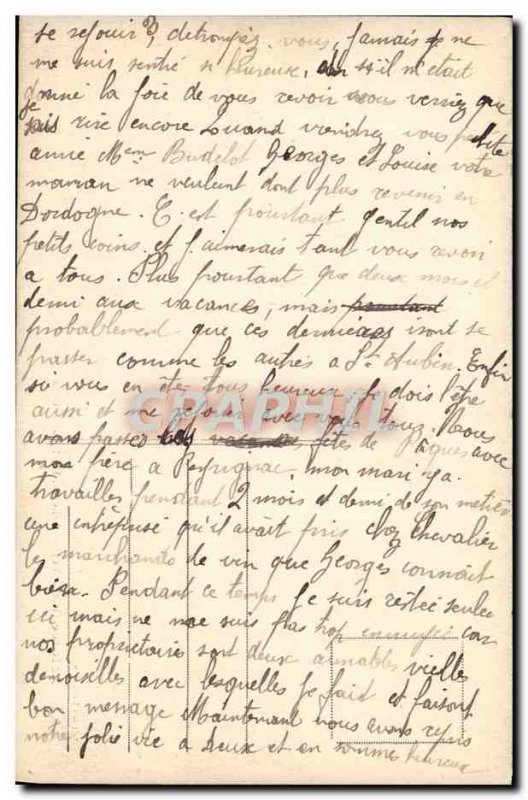 se rejouir?, détrompez vous, jamais je ne
me suis sentie si heureuse, s'il m'était
donné la joie de vous revoir vous verriez que
je sais rire encore Quand viendrez vous petite
amie Mme Budelot Georges et Louise votre
maman ne veulent dont plus revenir en
Dordogne. C'est pourtant gentil nos
petits coins et j'aimerais tant vous revoir
a tous. Plus pourtant que deux mois et
demi aux vacances, mais pourtant
probablement que ces dernieres iront se
passer comme les autres a St Aubin. Enfin
si vous en êtes tous heureux je dois l'être
aussi et me rejouir avec vous tous. Nous
avons passer les vacances fêtes de Pâques avec
mon frère a mon mari ya
travailler pendant 2 mois et demi de son métier
une entreprise qu'il avait pris chez Chevalier
les marchands de vin que Georges connait
bien. Pendant ce temps je suis restée seulee
ici mais ne me suis pas trop ennuyée car
nos proprietaires sont deux aimables vieilles
demoiselles avec lesquelles je fait et faisont
bon menage Maintenant nous avons repris
notre jolie vie a deux et en sommes heureux
CPAPHIL